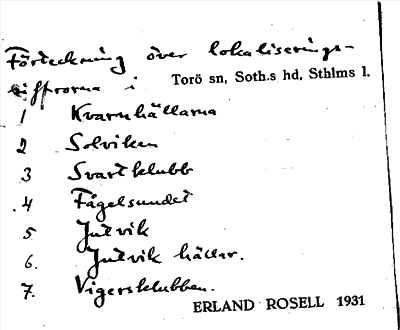 Förteckning över lokaliserings-
siffrorna i Torö sn, Soth.s hd, Sthlms l.
1 Kvarnhällarna
2 Solviken
3 Svartklubb
.4 Fågelsundet
5 Julvik
6. Julvik hällar.
7. Vigersklubben.
ERLAND ROSELL 1931